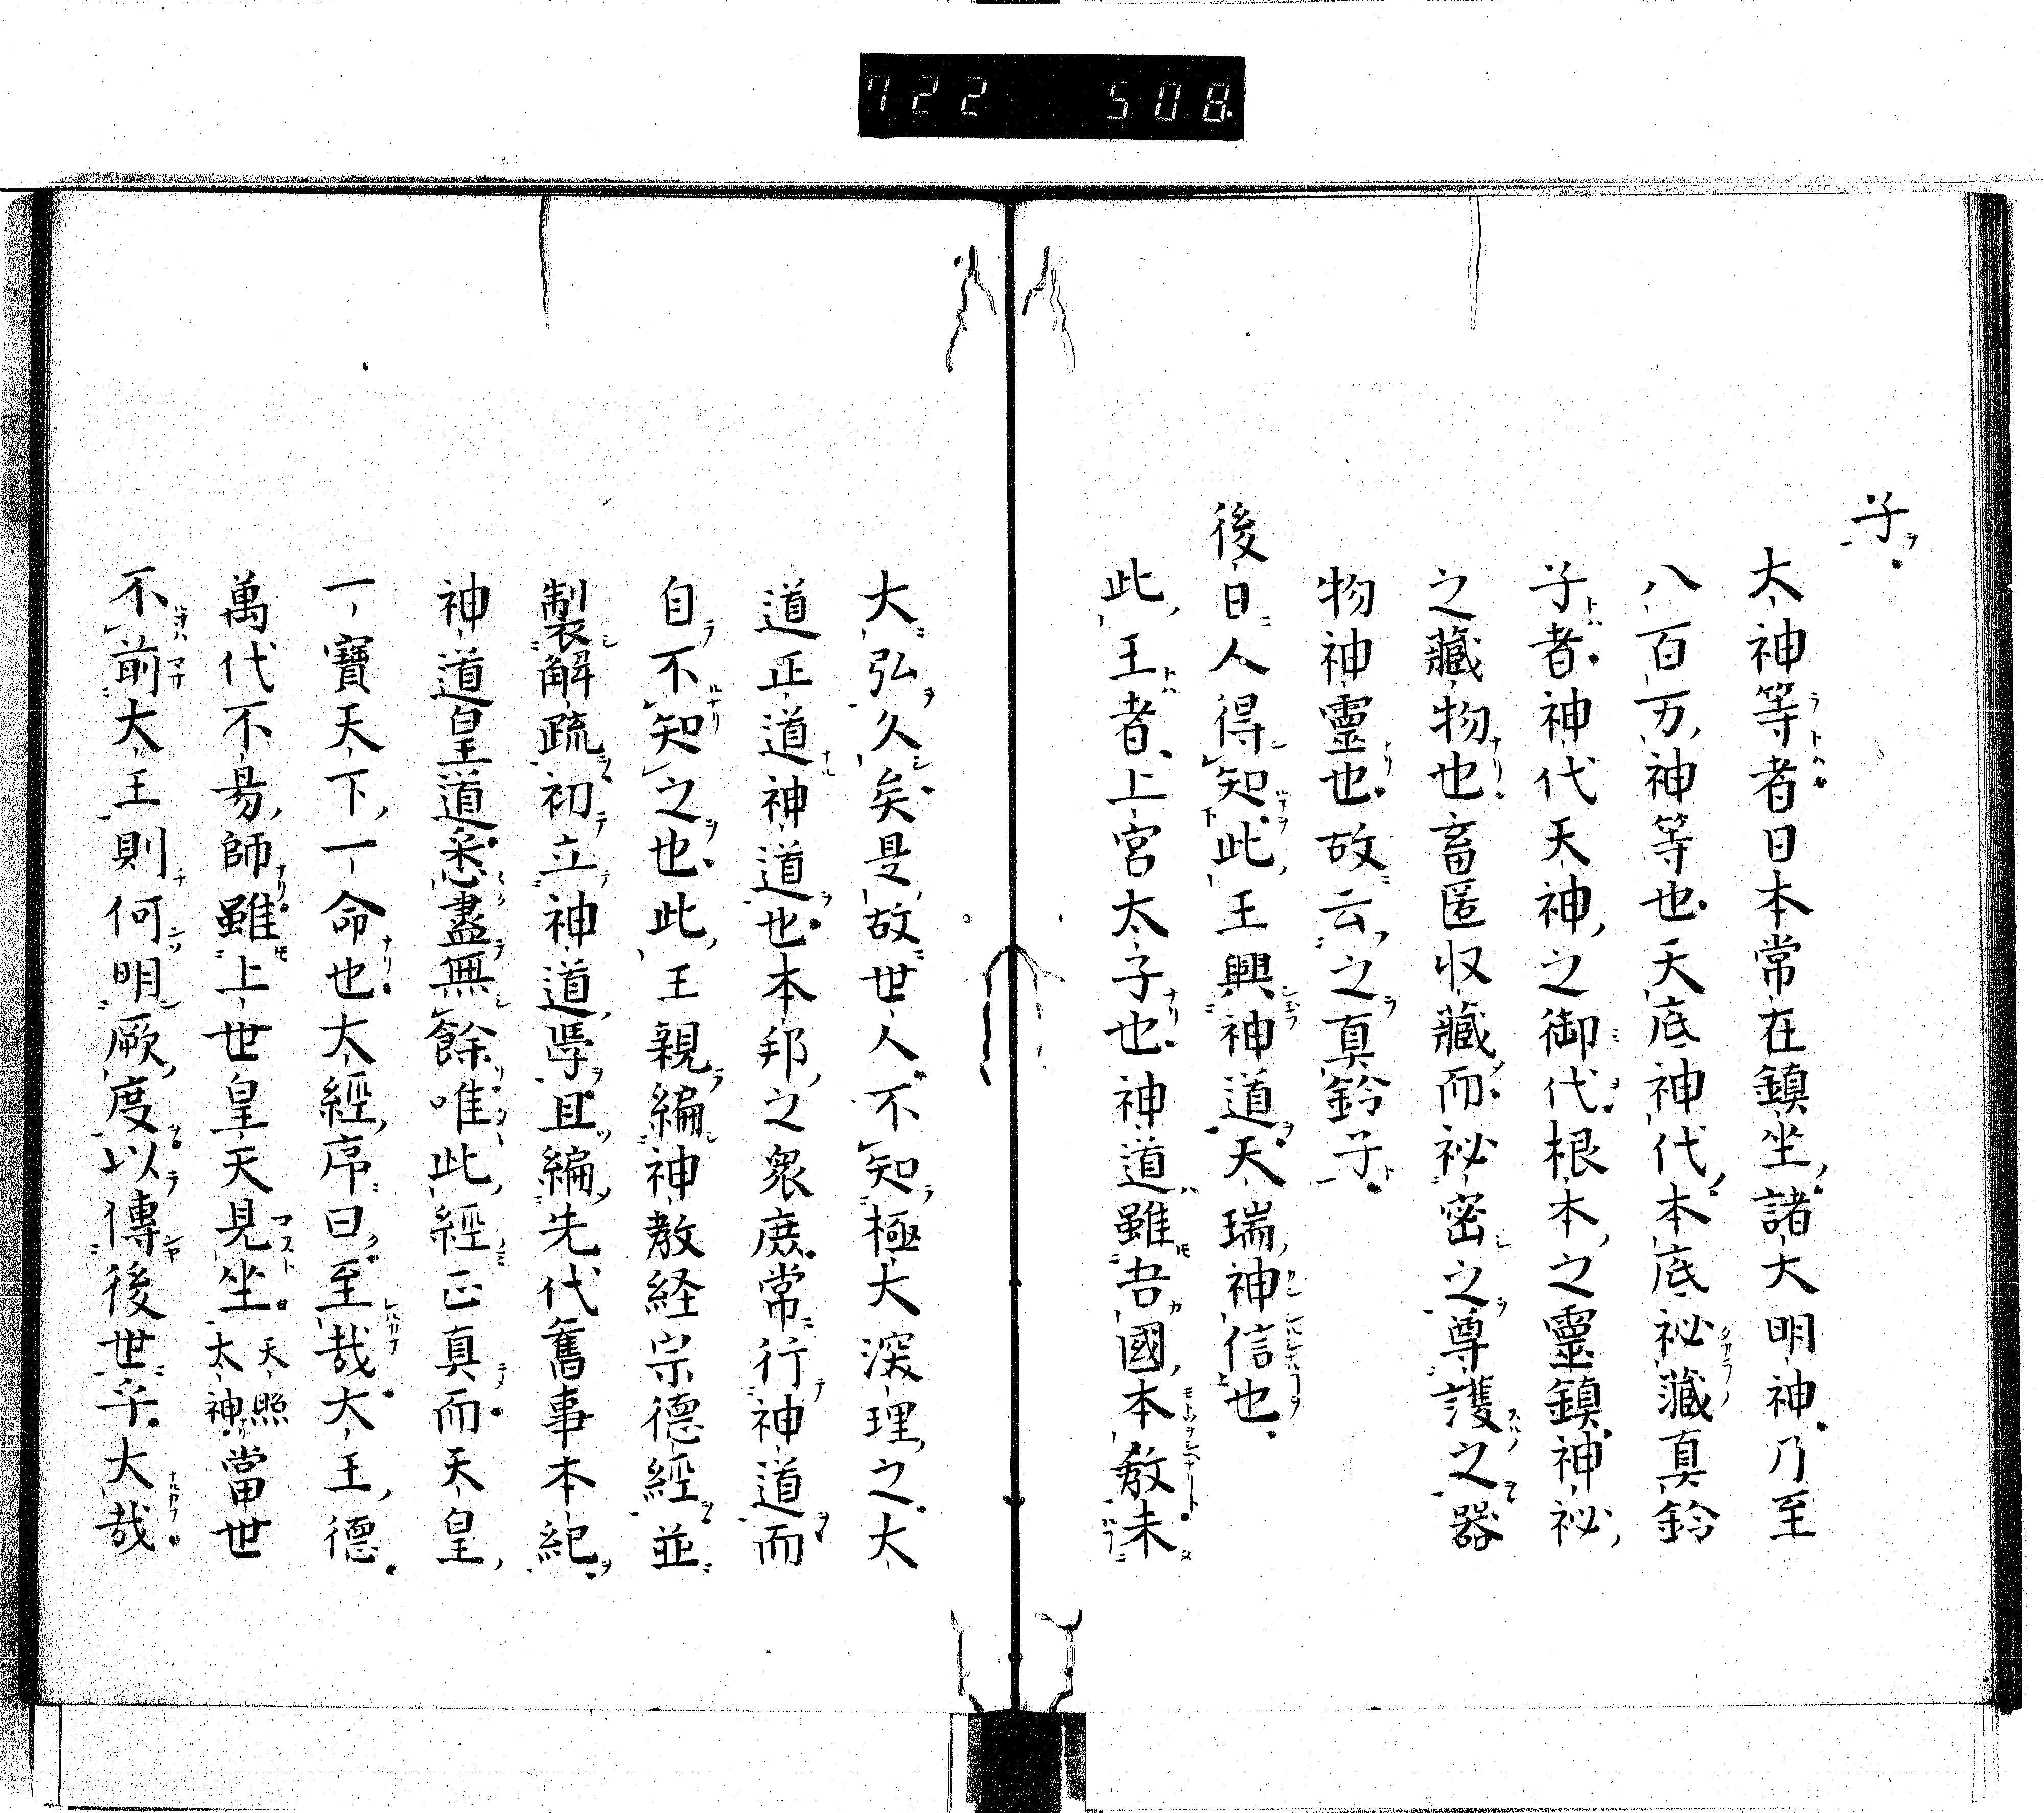 722 508
子
太神等者日本常在鎮坐諸大明神乃至
八百万神等也天底神代本底祕藏真鈴
子者神代天神之御代根本之靈鎮神祕
之藏物也畜匿収藏而祕密之尊護之器
物神靈也故云之真鈴子
後日人得知此王興神道天瑞神信也
此王者上宮太子也神道雖吾國本教未
大弘久矣是故世人不知極大深理之大
道正道神道也本邦之衆庶常行神道而
自不知之也此王親編神教経宗德經並
製解疏初立神道學且編先代舊事本紀
神道皇道悉盡無餘唯此經正真而天皇
一寶天下一命也大經序曰至哉大王德
萬代不易師雖上世皇天見坐天照太神當世
不前大王則何明厥度以傳後世乎大哉